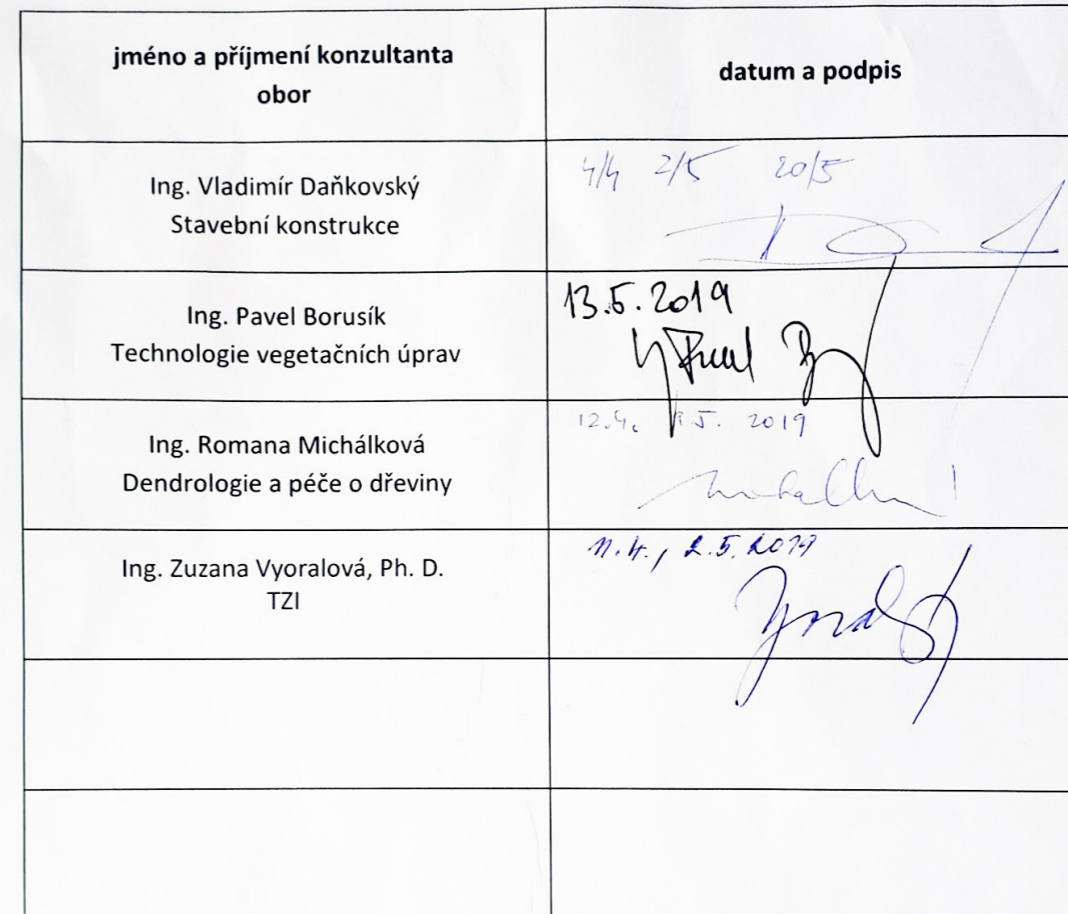 jméno a příjmení konzultanta
obor
datum a podpis
Ing. Vladimír Daňkovský
Stavební konstrukce
4/4 2/5 20/5
Ing. Pavel Borusík
Technologie vegetačních úprav
13.5.2019
Ing. Romana Michálková
Dendrologie a péče o dřeviny
12.4. 2019
Ing. Zuzana Vyoralová, Ph. D.
TZI
11.4., 2.5.2019